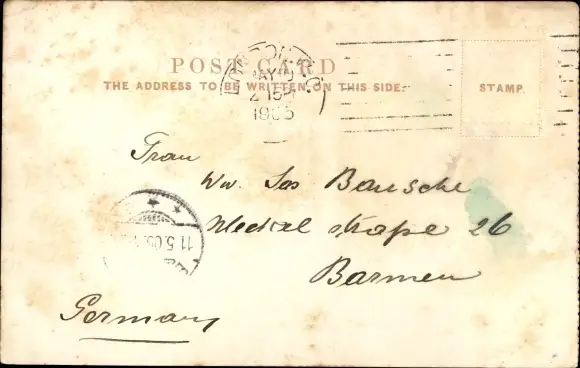 POST CARD
THE ADDRESS TO BE WRITTEN ON THIS SIDE.
STAMP.
LONDON
MAY 9
2 15
1905
Frau
Ww. Bausche
strasse 26
Barmen
11.5.05
Germany